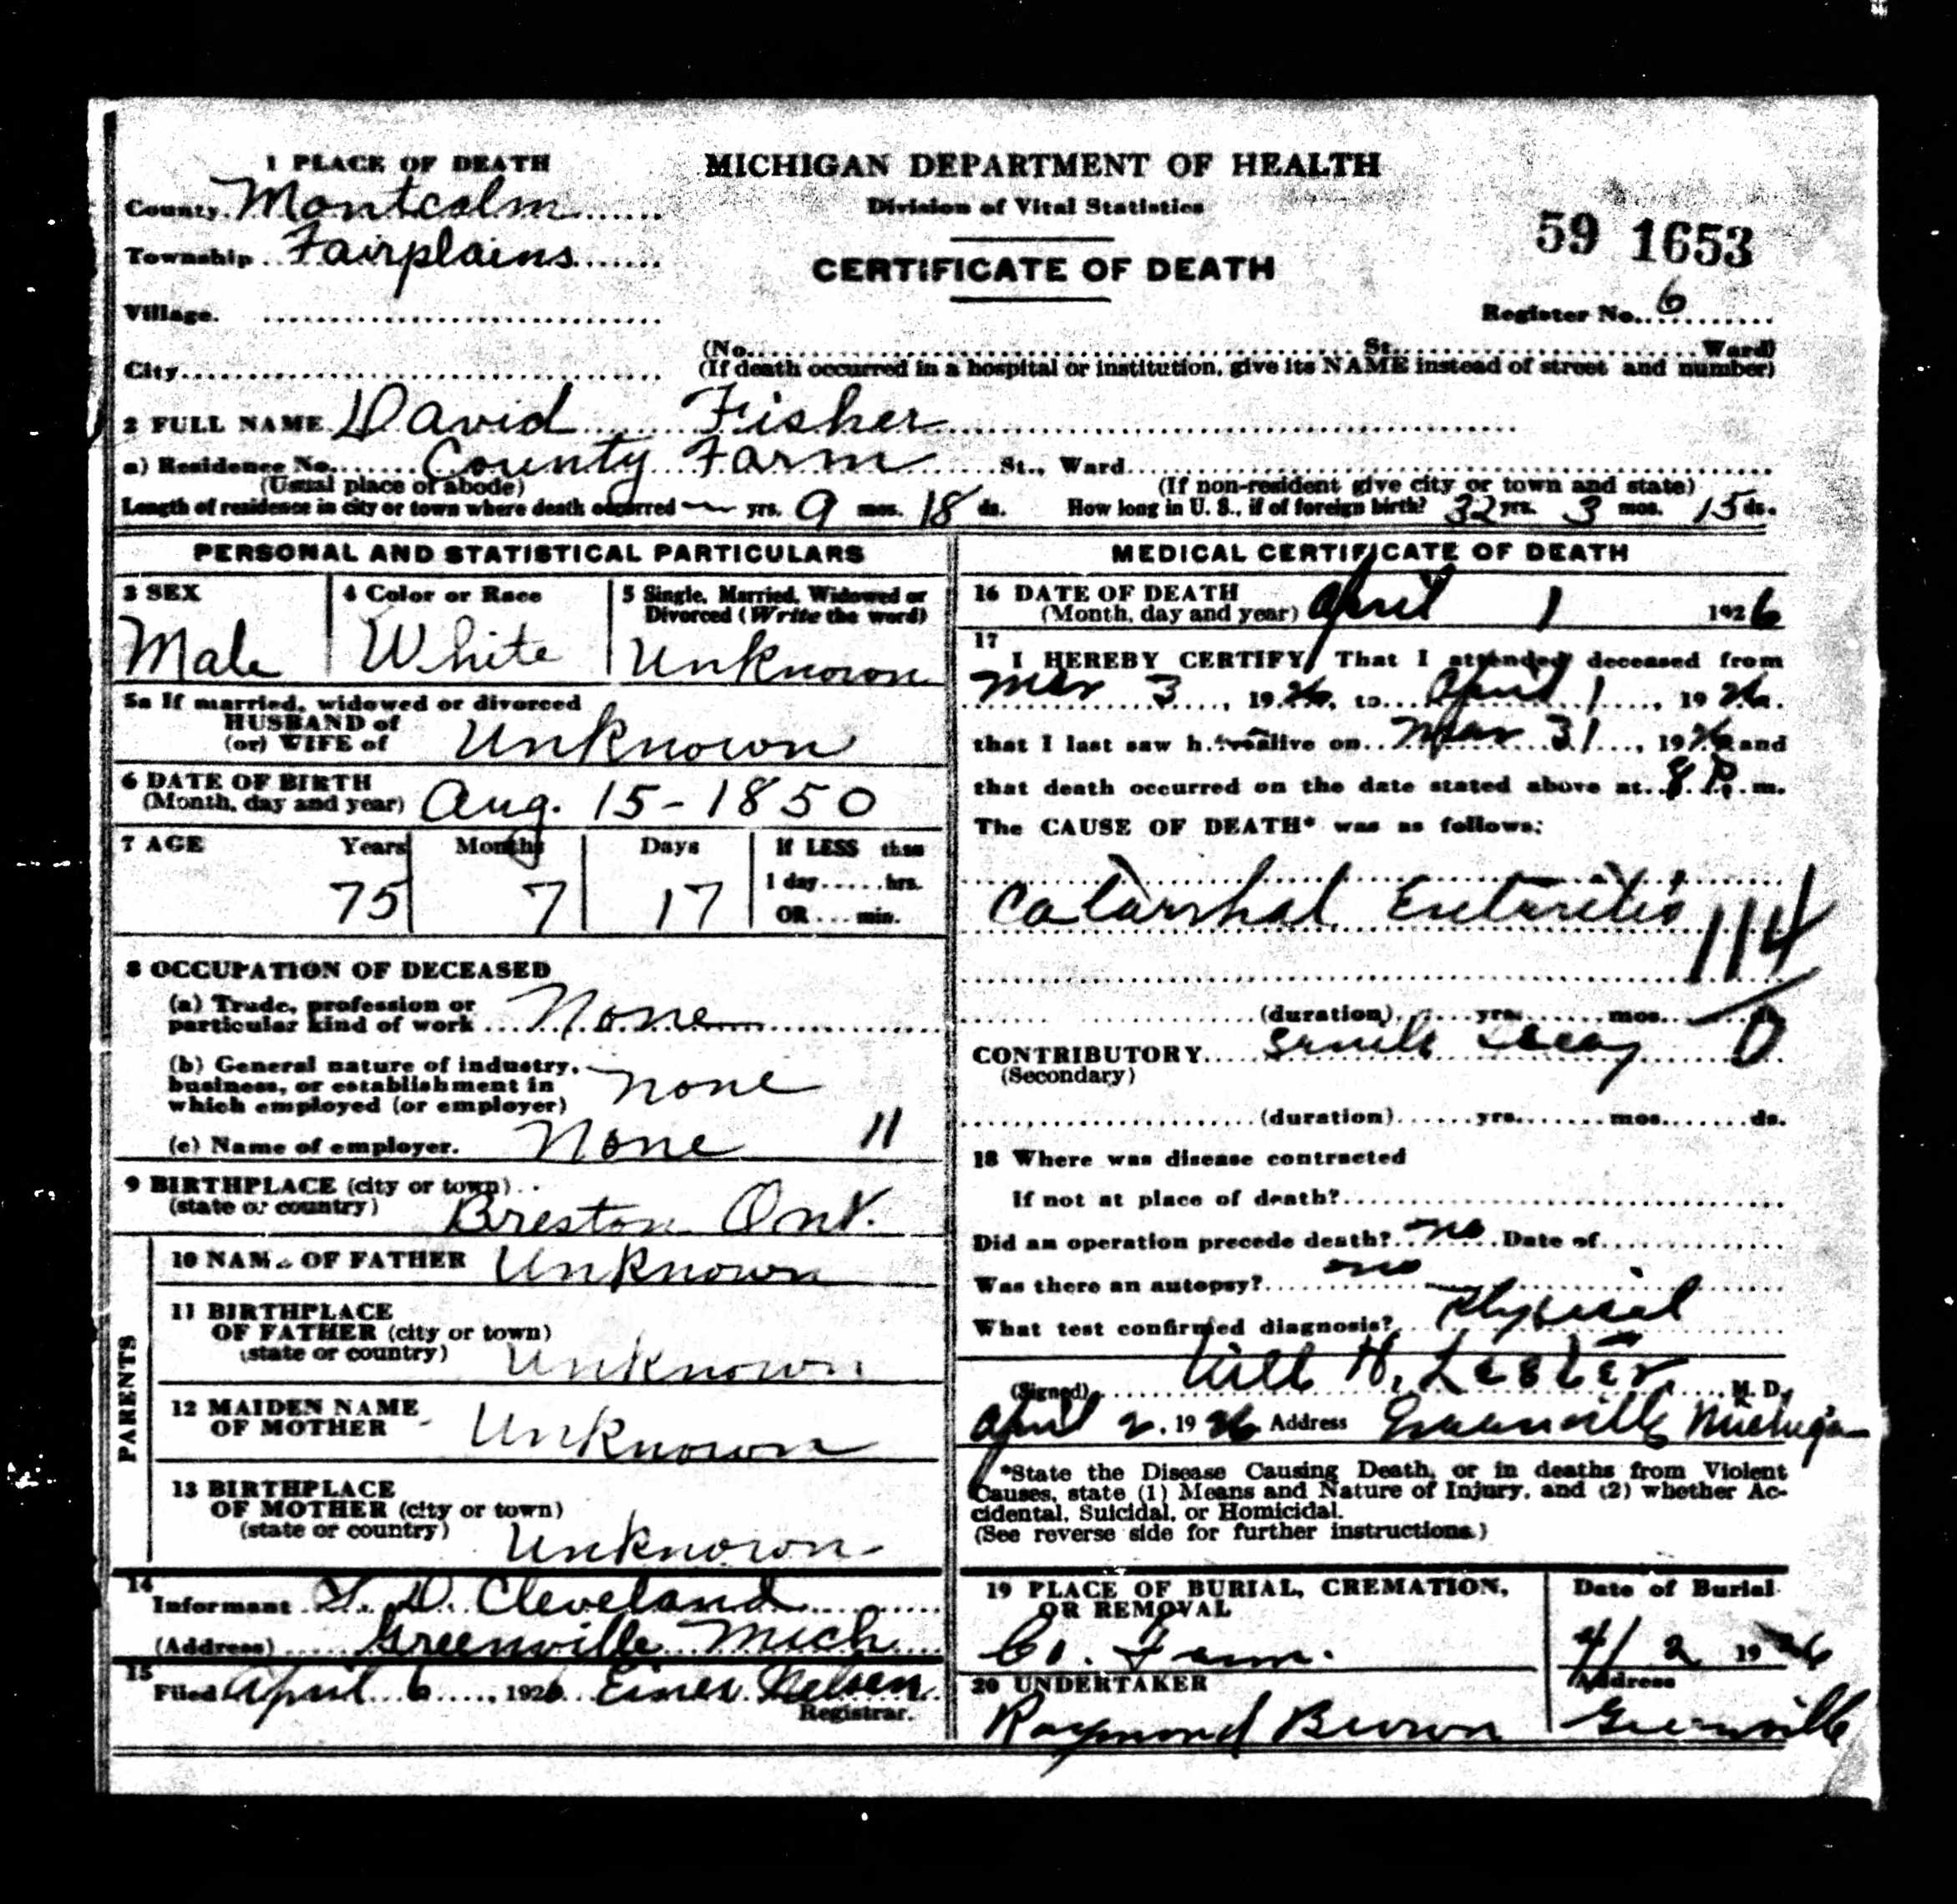 1 PLACE OF DEATH
MICHIGAN DEPARTMENT OF HEALTH
Division of Vital Statistics
CERTIFICATE OF DEATH
59 1653
County Montcalm
Township Fairplains
Village.
Register No. 6
City
(No. St. Ward)
(If death occurred in a hospital or institution, give its NAME instead of street and number)
2 FULL NAME David Fisher
a) Residence No. County Farm St., Ward
(Usual place of abode) (If non-resident give city or town and state)
Length of residence in city or town where death occurred — yrs. 9 mos. 18 ds. How long in U. S., if of foreign birth? 32 yrs. 3 mos. 15 ds.
PERSONAL AND STATISTICAL PARTICULARS
3 SEX
Male
4 Color or Race
White
5 Single, Married, Widowed or
Divorced (Write the word)
Unknown
5a If married, widowed or divorced
HUSBAND of
(or) WIFE of Unknown
6 DATE OF BIRTH
(Month, day and year) Aug. 15-1850
7 AGE Years Months Days If LESS than
1 day hrs.
75 7 17 OR min.
8 OCCUPATION OF DECEASED
(a) Trade, profession or
particular kind of work None
(b) General nature of industry,
business, or establishment in
which employed (or employer) None
(c) Name of employer. None 11
9 BIRTHPLACE (city or town)
(state or country) Breston Ont.
PARENTS
10 NAME OF FATHER Unknown
11 BIRTHPLACE
OF FATHER (city or town)
(state or country) Unknown
12 MAIDEN NAME
OF MOTHER Unknown
13 BIRTHPLACE
OF MOTHER (city or town)
(state or country) Unknown
14
Informant L. D. Cleveland
(Address) Greenville Mich
15
Filed April 6, 1926 Einer Nelsen
Registrar.
MEDICAL CERTIFICATE OF DEATH
16 DATE OF DEATH
(Month, day and year) April 1 1926
17
I HEREBY CERTIFY, That I attended deceased from
Mar 3, 1926, to April 1, 1926.
that I last saw h im alive on Mar 31, 1926 and
that death occurred on the date stated above at 8 P. m.
The CAUSE OF DEATH* was as follows:
Catarrhal Enteritis
114
(duration) yrs. mos. ds.
CONTRIBUTORY Senile Decay
(Secondary)
(duration) yrs. mos. ds.
18 Where was disease contracted
If not at place of death?
Did an operation precede death? no Date of
Was there an autopsy? no
What test confirmed diagnosis? Physical
(Signed) Will H. Lester, M. D.
April 2, 1926 Address Greenville Michigan
*State the Disease Causing Death, or in deaths from Violent
Causes, state (1) Means and Nature of Injury, and (2) whether Ac-
cidental, Suicidal, or Homicidal.
(See reverse side for further instructions.)
19 PLACE OF BURIAL, CREMATION,
OR REMOVAL
Co. Farm.
Date of Burial
4/2 1926
20 UNDERTAKER
Raymond Brown
Address
Greenville